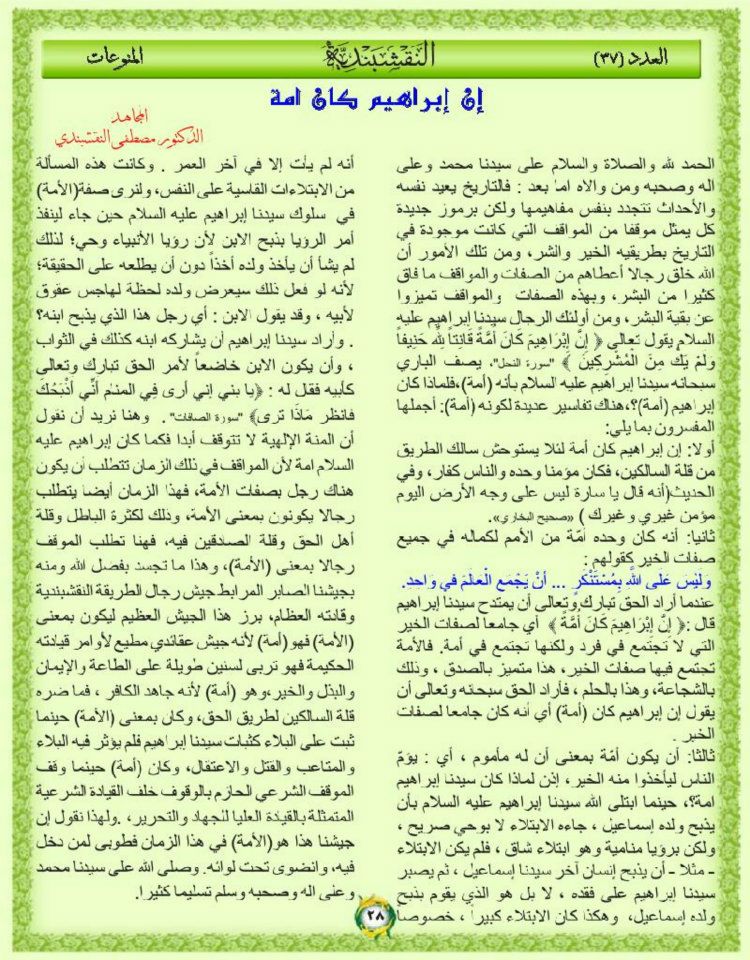 العدد (٣٧)
النقشبندية
المنوعات
إن إبراهيم كان امة
المجاهد
الدكتور مصطفى النقشبندي
الحمد لله والصلاة والسلام على سيدنا محمد وعلى
اله وصحبه ومن والاه اما بعد : فالتاريخ يعيد نفسه
والأحداث تتجدد بنفس مفاهيمها ولكن برموز جديدة
كل يمثل موقفا من المواقف التي كانت موجودة في
التاريخ بطريقيه الخير والشر، ومن تلك الأمور أن
الله خلق رجالا أعطاهم من الصفات والمواقف ما فاق
كثيرا من البشر، وبهذه الصفات والمواقف تميزوا
عن بقية البشر، ومن أولئك الرجال سيدنا إبراهيم عليه
السلام يقول تعالى ﴿ إِنَّ إِبْرَاهِيمَ كَانَ أُمَّةً قَانِتاً لِلَّهِ حَنِيفاً
وَلَمْ يَكُ مِنَ الْمُشْرِكِينَ ﴾ "سورة النحل"، يصف الباري
سبحانه سيدنا إبراهيم عليه السلام بأنه (أمة)،فلماذا كان
إبراهيم (أمة)؟،هناك تفاسير عديدة لكونه (أمة): أجملها
المفسرون بما يلي:
أولا: إن إبراهيم كان أمة لئلا يستوحش سالك الطريق
من قلة السالكين، فكان مؤمنا وحده والناس كفار، وفي
الحديث(أنه قال يا سارة ليس على وجه الأرض اليوم
مؤمن غيري وغيرك ) «صحيح البخاري».
ثانيا: أنه كان وحده أمّة من الأمم لكماله في جميع
صفات الخير كقولهم :
وَلَيْسَ عَلَى اللَّهِ بِمُسْتَنْكَرٍ ... أَنْ يَجْمَعَ الْعَالَمَ فِي وَاحِدِ.
عندما أراد الحق تبارك وتعالى أن يمتدح سيدنا إبراهيم
قال :﴿ إِنَّ إِبْرَاهِيمَ كَانَ أُمَّةً ﴾ أي جامعا لصفات الخير
التي لا تجتمع في فرد ولكنها تجتمع في أمة. فالأمة
تجتمع فيها صفات الخير، هذا متميز بالصدق ، وذلك
بالشجاعة، وهذا بالحلم ، فأراد الحق سبحانه وتعالى أن
يقول إن إبراهيم كان (أمة) أي أنه كان جامعا لصفات
الخير .
ثالثا: أن يكون أمّة بمعنى أن له مأموم ، أي : يؤمّ
الناس ليأخذوا منه الخير، إذن لماذا كان إبراهيم
امة؟، حينما ابتلى الله سيدنا إبراهيم عليه السلام بأن
يذبح ولده إسماعيل، جاءه الابتلاء لا بوحي صريح ،
ولكن برويا منامية وهو ابتلاء شاق ، فلم يكن الابتلاء
ـ مثلا ـ أن يذبح إنسان آخر سيدنا إسماعيل ، ثم يصبر
سيدنا إبراهيم على فقده ، لا بل هو الذي يقوم بذبح
ولده إسماعيل، وهكذا كان الابتلاء كبيراً ، خصوصاً
أنه لم يأت إلا في آخر العمر . وكانت هذه المسألة
من الابتلاءات القاسية على النفس، ولنرى صفة(الأمة)
في سلوك سيدنا إبراهيم عليه السلام حين جاء لينفذ
أمر الرؤيا بذبح الابن لأن رؤيا الأنبياء وحي؛ لذلك
لم يشأ أن يأخذ ولده أخذاً دون أن يطلعه على الحقيقة؛
لأنه لو فعل ذلك سيعرض ولده لحظة لهاجس عقوق
لأبيه ، وقد يقول الابن : أي رجل هذا الذي يذبح ابنه؟
. وأراد سيدنا إبراهيم أن يشاركه ابنه كذلك في الثواب
، وأن يكون الابن خاضعاً لأمر الحق تبارك وتعالى
كأبيه فقال له : ﴿يا بني إني أرى في المنام أَنِّي أَذْبَحُكَ
فانظر مَاذَا ترى﴾ "سورة الصافات" . وهنا نريد أن نقول
أن المنة الإلهية لا تتوقف أبدا فكما كان إبراهيم عليه
السلام امة لأن المواقف في ذلك الزمان تتطلب أن يكون
هناك رجل بصفات الأمة، فهذا الزمان أيضا يتطلب
رجالا يكونون بمعنى الأمة، وذلك لكثرة الباطل وقلة
أهل الحق وقلة الصادقين فيه، فهنا تطلب الموقف
رجالا بمعنى (الأمة)، وهذا ما تجسد بفضل الله ومنه
بجيشنا الصابر المرابط جيش رجال الطريقة النقشبندية
وقادته العظام، برز هذا الجيش العظيم ليكون بمعنى
(الأمة) فهو(أمة) لأنه جيش عقائدي مطيع لأوامر قيادته
الحكيمة فهو تربى لسنين طويلة على الطاعة والإيمان
والبذل والخير،وهو (أمة) لأنه جاهد الكافر ، فما ضره
قلة السالكين لطريق الحق، وكان بمعنى (الأمة) حينما
ثبت على البلاء كثبات سيدنا إبراهيم فلم يؤثر فيه البلاء
والمتاعب والقتل والاعتقال، وكان (أمة) حينما وقف
الموقف الشرعي الحازم بالوقوف خلف القيادة الشرعية
المتمثلة بالقيادة العليا للجهاد والتحرير، .ولهذا نقول إن
جيشنا هذا هو(الأمة) في هذا الزمان فطوبى لمن دخل
فيه، وانضوى تحت لوائه. وصلى الله على سيدنا محمد
وعلى اله وصحبه وسلم تسليما كثيرا.
٢٨